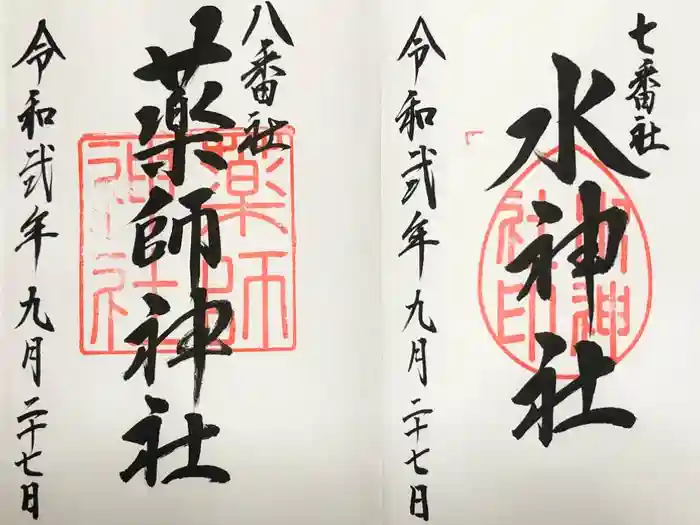 七番社
水神社
水神社印
令和弐年九月二十七日
八番社
薬師神社
薬師神社
令和弐年九月二十七日